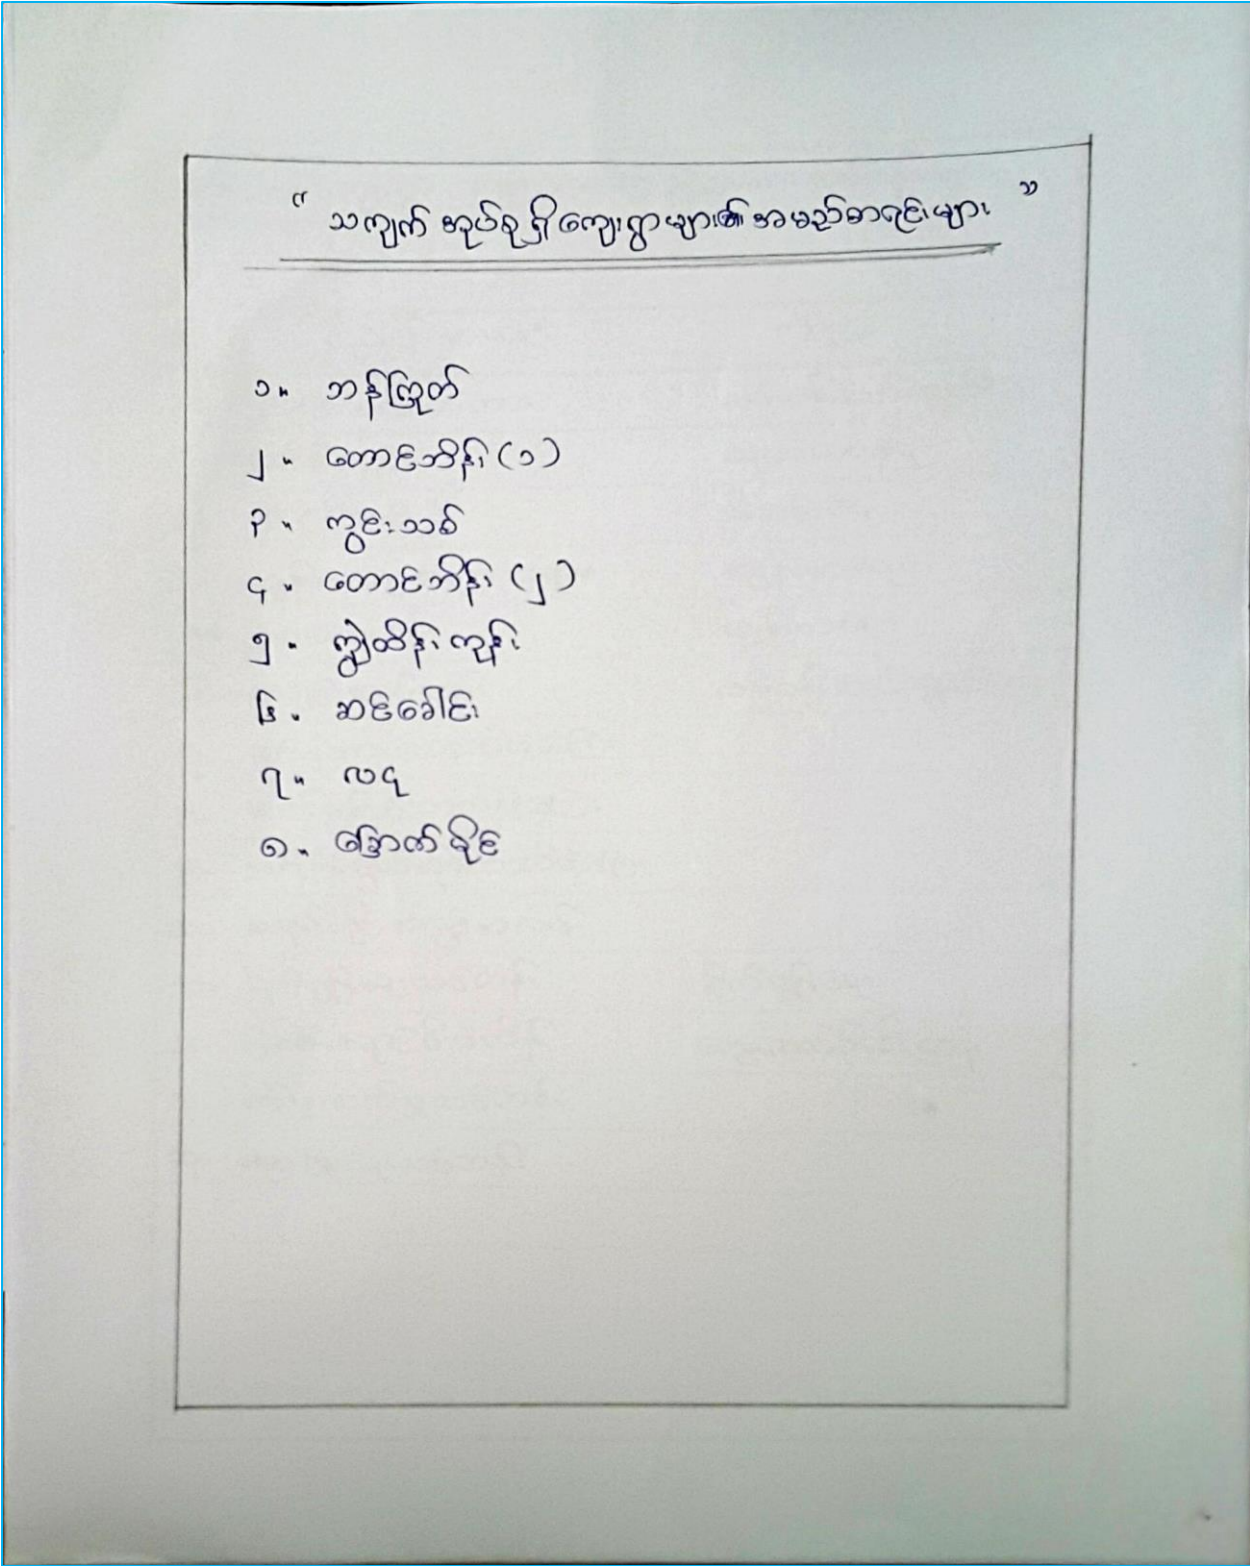 " သကျက် အုပ်စု ရှိ ကျေးရွာများ၏ အမည်စာရင်းများ "
၁။ ဘန်ကြုတ်
၂။ တောင်ဘိန်း (၁)
၃။ ကွင်းသစ်
၄။ တောင်ဘိန်း (၂)
၅။ ကျွဲထိန်းကုန်း
၆။ ဆင်ခေါင်း
၇။ လငု
၈။ မြောက်ခိုင်